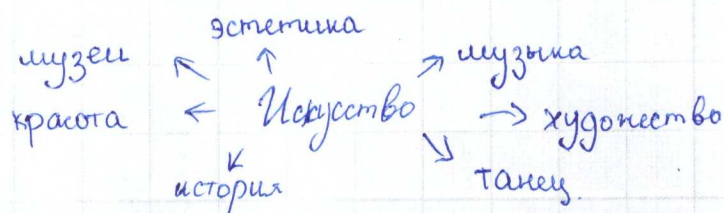 эстетика
музеи
музыка
красота
Искусство
художество
история
танец